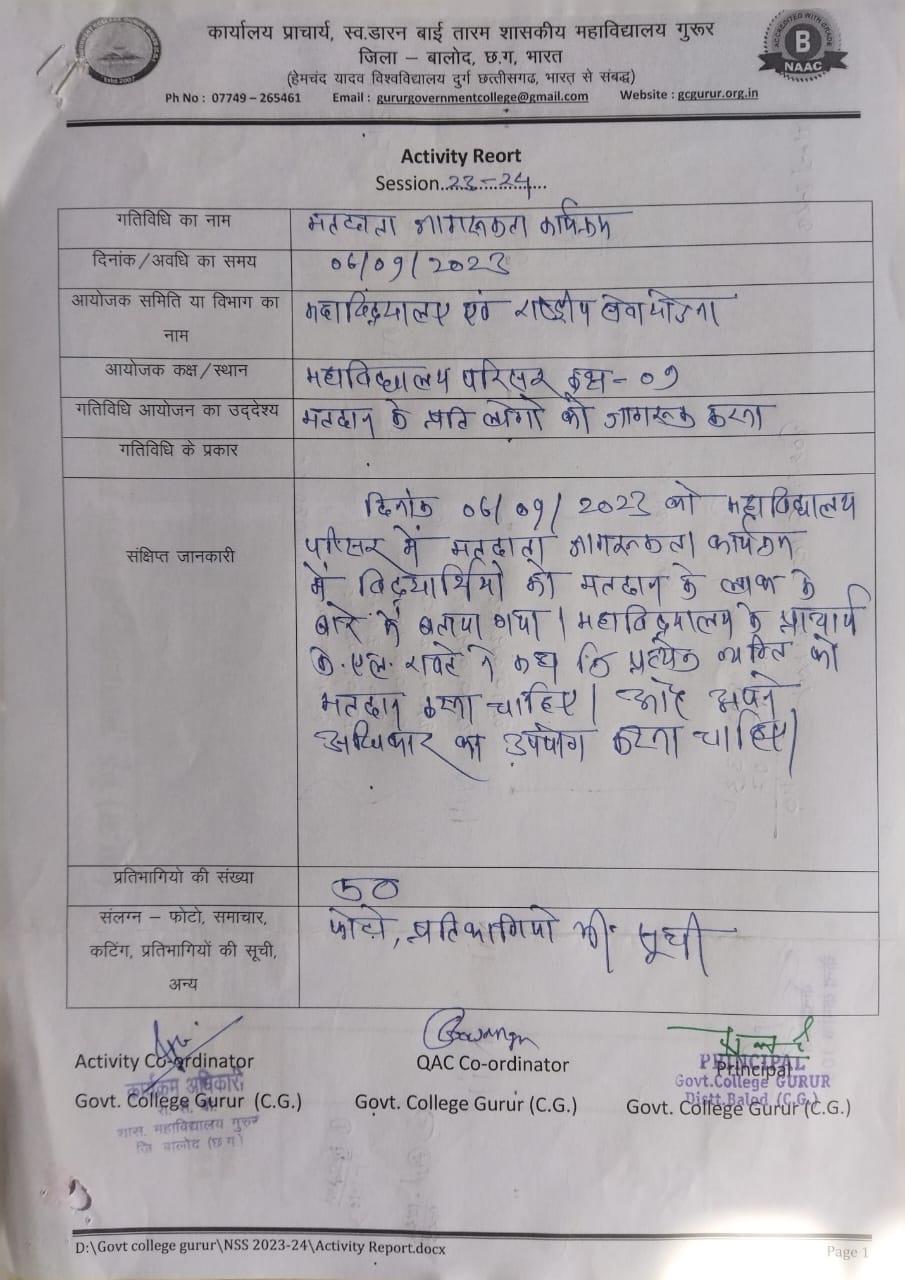 कार्यालय प्राचार्य, स्व.डारन बाई तारम शासकीय महाविद्यालय गुरूर
जिला – बालोद, छ.ग, भारत
(हेमचंद यादव विश्वविद्यालय दुर्ग छत्तीसगढ, भारत से संबद्ध)
Ph No : 07749 – 265461 Email : gururgovernmentcollege@gmail.com Website : gcgurur.org.in
ACCREDITED WITH GRADE
B
NAAC
Activity Reort
Session..23-24...
गतिविधि का नाम मतदाता जागरूकता कार्यक्रम
दिनांक/अवधि का समय 06/09/2023
आयोजक समिति या विभाग का महाविद्यालय एवं राष्ट्रीय सेवा योजना
नाम
आयोजक कक्ष/स्थान महाविद्यालय परिसर कक्ष - 09
गतिविधि आयोजन का उद्देश्य मतदान के प्रति लोगो को जागरूक करना
गतिविधि के प्रकार
संक्षिप्त जानकारी
दिनांक 06/09/2023 को महाविद्यालय
परिसर में मतदाता जागरूकता कार्यक्रम
में विद्यार्थियो को मतदान के लाभ के
बारे में बताया गया। महाविद्यालय के प्राचार्य
के.एल. रावटे ने कहा कि प्रत्येक व्यक्ति को
मतदान करना चाहिए। और अपने
अधिकार का उपयोग करना चाहिए।
प्रतिभागियो की संख्या 50
संलग्न – फोटो, समाचार, फोटो, प्रतिभागियो की सूची
कटिंग, प्रतिभागियों की सूची,
अन्य
Activity Co-ordinator QAC Co-ordinator Principal
Govt. College Gurur (C.G.) Govt. College Gurur (C.G.) Govt. College Gurur (C.G.)
कार्यक्रम अधिकारी
शास. महाविद्यालय गुरूर
जि बालोद (छ ग)
PRINCIPAL
Govt.College GURUR
Distt.Balod (C.G.)
D:\Govt college gurur\NSS 2023-24\Activity Report.docx Page 1